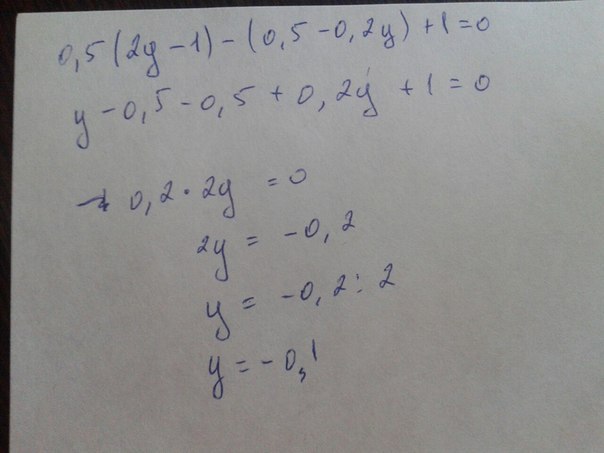 0,5(2y-1)-(0,5-0,2y)+1=0
y-0,5-0,5+0,2y+1=0
0,2·2y=0
2y=-0,2
y=-0,2:2
y=-0,1